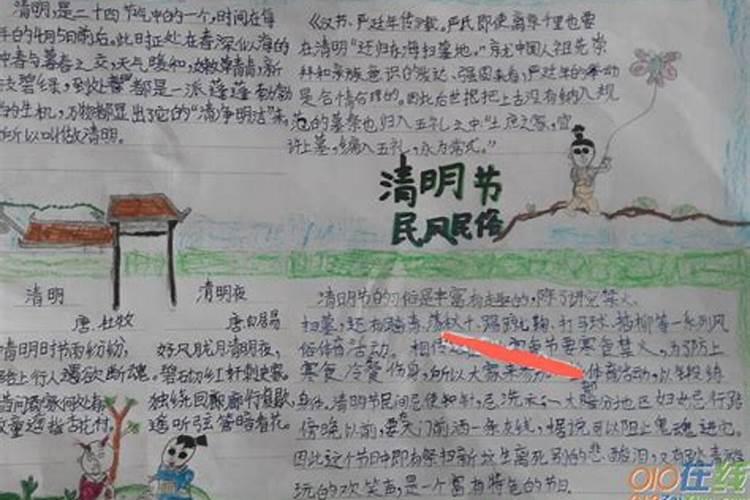 清明，是二十四节气中的一个，时间在每
年的4月5日前后。此时正处在春深似海的
仲春与暮春之交，天气暖和，
碧绿，到处都是一派蓬蓬勃勃
的生机，万物都显出了它的“清净明洁”来，
所以叫做清明。
《汉书·严延年传》载，严氏即使离京千里也要
在清明“还归东海扫墓地。”就中国人祖先崇
拜和亲族意识的发达、强固来看，严延年的举动
是合情合理的。因此后世把把上古没有纳入规
范的墓祭也归入五礼之中“士庶之家，宜
许上墓，编入五礼，永为常式。”
清明节
民风民俗
清明
唐.杜牧
清明时节雨纷纷，
路上行人遇欲断魂。
借问酒家何处有
牧童遥指杏花村。
清明夜
唐白居易
好风胧月清明夜，
碧石砌红轩刺史家。
独绕回廊廊行复歇，
遥听弦管暗看花。
清明节的习俗是丰富有趣的，除了讲究禁火、
扫墓，还有踏青、荡秋千、踢蹴鞠、打马球、插柳等一系列风
俗体育活动。相传 寒食节要寒食禁火，为防止
寒食冷餐伤身，所以大家来参加一 体育活动，以锻炼
身体。清明节民间忌使和针，忌洗衣，大部分地区妇女忌行路。
傍晚以前，要在大门前洒一条灰线，据说可以阻止鬼魂进宅。
因此这个节日中即有祭扫新坟生离死别的悲酸泪，又有踏青游
玩的欢笑声，是一个富有特色的节日。
010在线